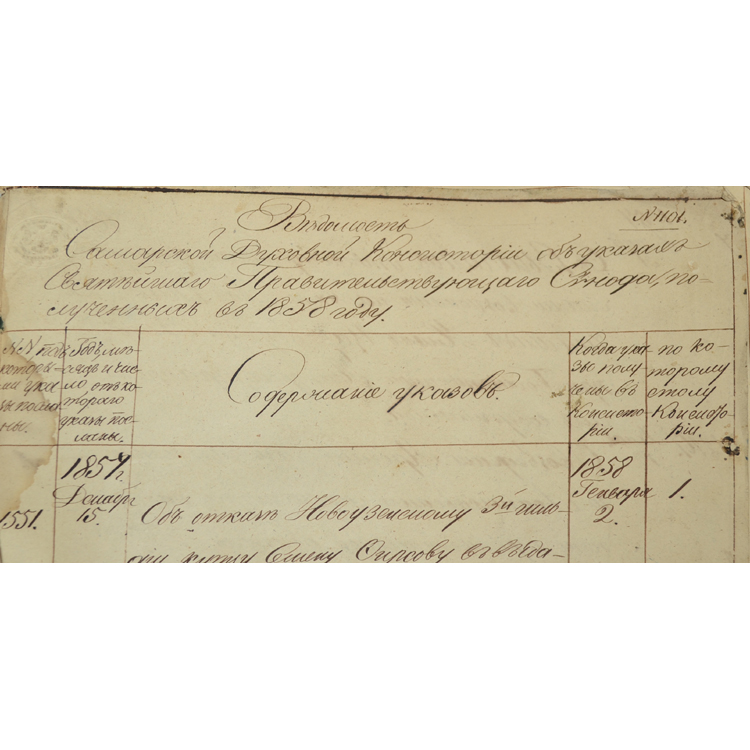 Вѣдомость
№ 1101.
Самарской Духовной Консисторіи объ указахъ
Святѣйшаго Правительствующаго Сѵнода, по-
лученныхъ въ 1858 году.
№№ подъ
которы-
ми ука-
зы посла-
ны.
Годъ, мѣ-
сяцъ и чис-
ло, отъ ко-
тораго
указы по-
сланы.
Содержаніе указовъ.
Когда ука-
зы полу-
чены въ
Консисто-
ріи.
по ко-
торому
столу
Консисто-
ріи.
1551.
1857 г.
Декабр.
15.
Объ отказѣ Новоузенскому 3й гиль-
діи купцу
1858
Генваря
2.
1.